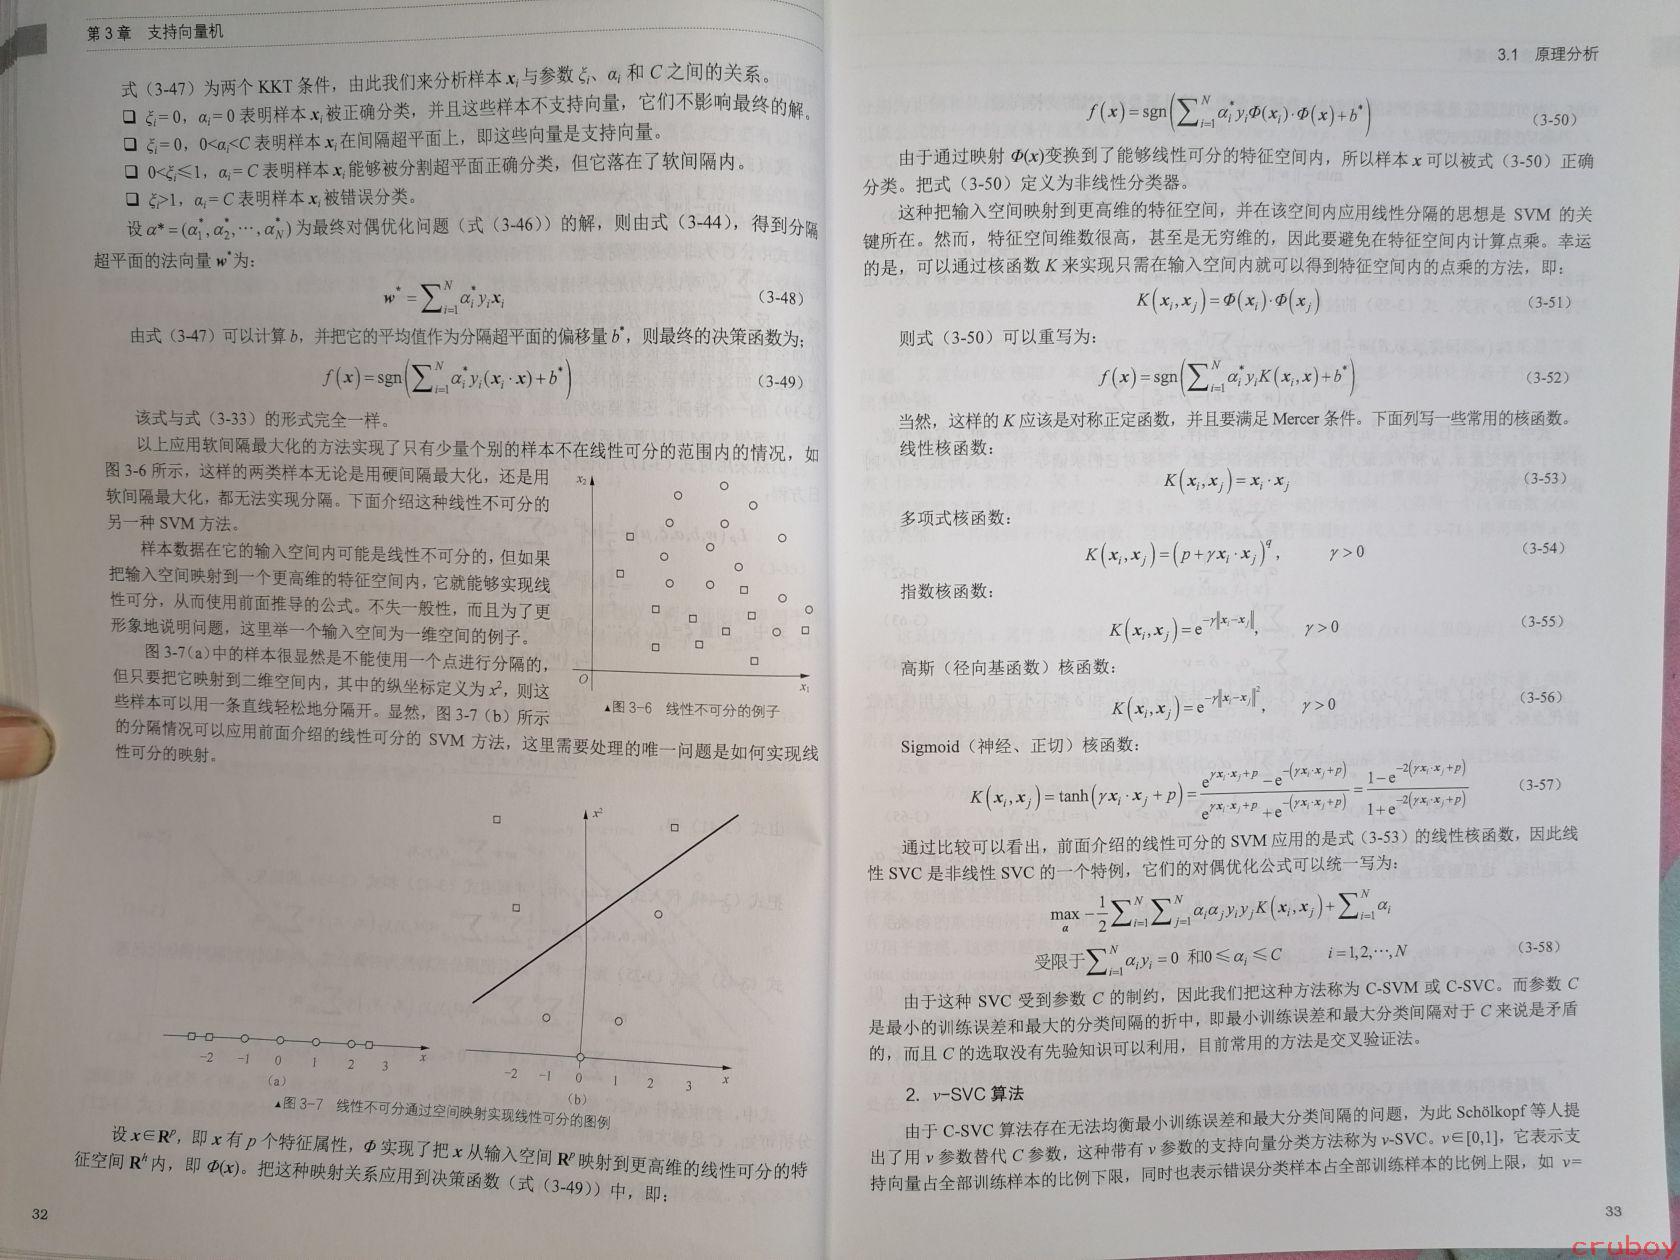 第3章 支持向量机
式（3-47）为两个 KKT 条件，由此我们来分析样本 xᵢ与参数 ξᵢ、αᵢ 和 C 之间的关系。
❑ ξᵢ= 0，αᵢ= 0 表明样本 xᵢ被正确分类，并且这些样本不支持向量，它们不影响最终的解。
❑ ξᵢ= 0，0<αᵢ<C 表明样本 xᵢ在间隔超平面上，即这些向量是支持向量。
❑ 0<ξᵢ≤1，αᵢ= C 表明样本 xᵢ能够被分割超平面正确分类，但它落在了软间隔内。
❑ ξᵢ>1，αᵢ= C 表明样本 xᵢ被错误分类。
设 α* = (α₁*, α₂*, ⋯, α_N*) 为最终对偶优化问题（式（3-46））的解，则由式（3-44），得到分隔
超平面的法向量 w*为：
w* = ∑_{i=1}^{N} αᵢ* yᵢ xᵢ （3-48）
由式（3-47）可以计算 b，并把它的平均值作为分隔超平面的偏移量 b*，则最终的决策函数为；
f(x) = sgn(∑_{i=1}^{N} αᵢ* yᵢ(xᵢ · x) + b*) （3-49）
该式与式（3-33）的形式完全一样。
以上应用软间隔最大化的方法实现了只有少量个别的样本不在线性可分的范围内的情况，如
图 3-6 所示，这样的两类样本无论是用硬间隔最大化，还是用
软间隔最大化，都无法实现分隔。下面介绍这种线性不可分的
另一种 SVM 方法。
样本数据在它的输入空间内可能是线性不可分的，但如果
把输入空间映射到一个更高维的特征空间内，它就能够实现线
性可分，从而使用前面推导的公式。不失一般性，而且为了更
形象地说明问题，这里举一个输入空间为一维空间的例子。
图 3-7（a）中的样本很显然是不能使用一个点进行分隔的，
但只要把它映射到二维空间内，其中的纵坐标定义为 x²，则这
些样本可以用一条直线轻松地分隔开。显然，图 3-7（b）所示
的分隔情况可以应用前面介绍的线性可分的 SVM 方法，这里需要处理的唯一问题是如何实现线
性可分的映射。
x₂
O
x₁
▲图 3-6 线性不可分的例子
-2 -1 0 1 2 3 x
（a）
x²
-2 -1 0 1 2 3 x
（b）
▲图 3-7 线性不可分通过空间映射实现线性可分的图例
设 x∈Rᵖ，即 x 有 p 个特征属性，Φ 实现了把 x 从输入空间 Rᵖ 映射到更高维的线性可分的特
征空间 Rʰ 内，即 Φ(x)。把这种映射关系应用到决策函数（式（3-49））中，即：
32
3.1 原理分析
f(x) = sgn(∑_{i=1}^{N} αᵢ* yᵢ Φ(xᵢ)·Φ(x) + b*) （3-50）
由于通过映射 Φ(x)变换到了能够线性可分的特征空间内，所以样本 x 可以被式（3-50）正确
分类。把式（3-50）定义为非线性分类器。
这种把输入空间映射到更高维的特征空间，并在该空间内应用线性分隔的思想是 SVM 的关
键所在。然而，特征空间维数很高，甚至是无穷维的，因此要避免在特征空间内计算点乘。幸运
的是，可以通过核函数 K 来实现只需在输入空间内就可以得到特征空间内的点乘的方法，即：
K(xᵢ, xⱼ) = Φ(xᵢ)·Φ(xⱼ) （3-51）
则式（3-50）可以重写为：
f(x) = sgn(∑_{i=1}^{N} αᵢ* yᵢ K(xᵢ, x) + b*) （3-52）
当然，这样的 K 应该是对称正定函数，并且要满足 Mercer 条件。下面列写一些常用的核函数。
线性核函数：
K(xᵢ, xⱼ) = xᵢ · xⱼ （3-53）
多项式核函数：
K(xᵢ, xⱼ) = (p + γxᵢ · xⱼ)^q， γ > 0 （3-54）
指数核函数：
K(xᵢ, xⱼ) = e^{-γ‖xᵢ-xⱼ‖}， γ > 0 （3-55）
高斯（径向基函数）核函数：
K(xᵢ, xⱼ) = e^{-γ‖xᵢ-xⱼ‖²}， γ > 0 （3-56）
Sigmoid（神经、正切）核函数：
K(xᵢ, xⱼ) = tanh(γxᵢ · xⱼ + p) = (e^{γxᵢ·xⱼ+p} - e^{-(γxᵢ·xⱼ+p)}) / (e^{γxᵢ·xⱼ+p} + e^{-(γxᵢ·xⱼ+p)}) = (1 - e^{-2(γxᵢ·xⱼ+p)}) / (1 + e^{-2(γxᵢ·xⱼ+p)}) （3-57）
通过比较可以看出，前面介绍的线性可分的 SVM 应用的是式（3-53）的线性核函数，因此线
性 SVC 是非线性 SVC 的一个特例，它们的对偶优化公式可以统一写为：
max_α -1/2 ∑_{i=1}^{N} ∑_{j=1}^{N} αᵢαⱼyᵢyⱼK(xᵢ, xⱼ) + ∑_{i=1}^{N} αᵢ
受限于 ∑_{i=1}^{N} αᵢyᵢ = 0 和 0 ≤ αᵢ ≤ C i = 1,2,⋯,N （3-58）
由于这种 SVC 受到参数 C 的制约，因此我们把这种方法称为 C-SVM 或 C-SVC。而参数 C
是最小的训练误差和最大的分类间隔的折中，即最小训练误差和最大分类间隔对于 C 来说是矛盾
的，而且 C 的选取没有先验知识可以利用，目前常用的方法是交叉验证法。
2．ν-SVC 算法
由于 C-SVC 算法存在无法均衡最小训练误差和最大分类间隔的问题，为此 Schölkopf 等人提
出了用 ν 参数替代 C 参数，这种带有 ν 参数的支持向量分类方法称为 ν-SVC。ν∈[0,1]，它表示支
持向量占全部训练样本的比例下限，同时也表示错误分类样本占全部训练样本的比例上限，如 ν=
33
cruboy